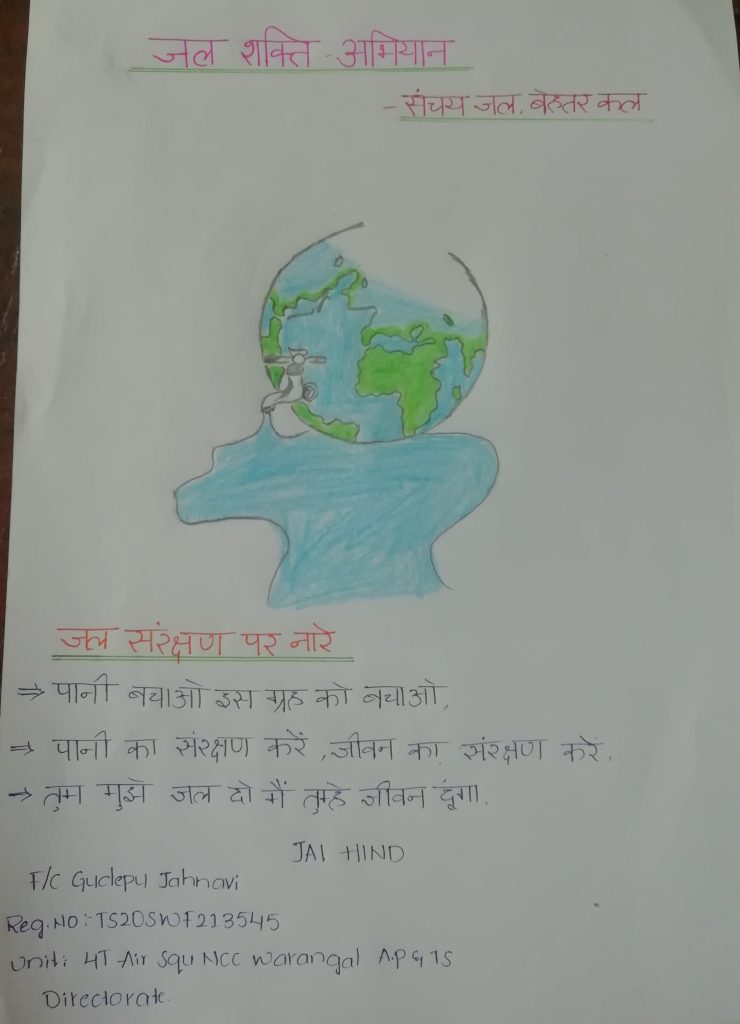 जल शक्ति अभियान
- संचय जल, बेहतर कल
जल संरक्षण पर नारे
⇒ पानी बचाओ इस ग्रह को बचाओ,
⇒ पानी का संरक्षण करें, जीवन का संरक्षण करें.
→ तुम मुझे जल दो मैं तुम्हे जीवन दूंगा.
JAI HIND
F/C Gudepu Jahnavi
Reg.NO:-TS20SWF213545
Unit: 4T Air Squ NCC Warangal A.P & TS
Directorate.